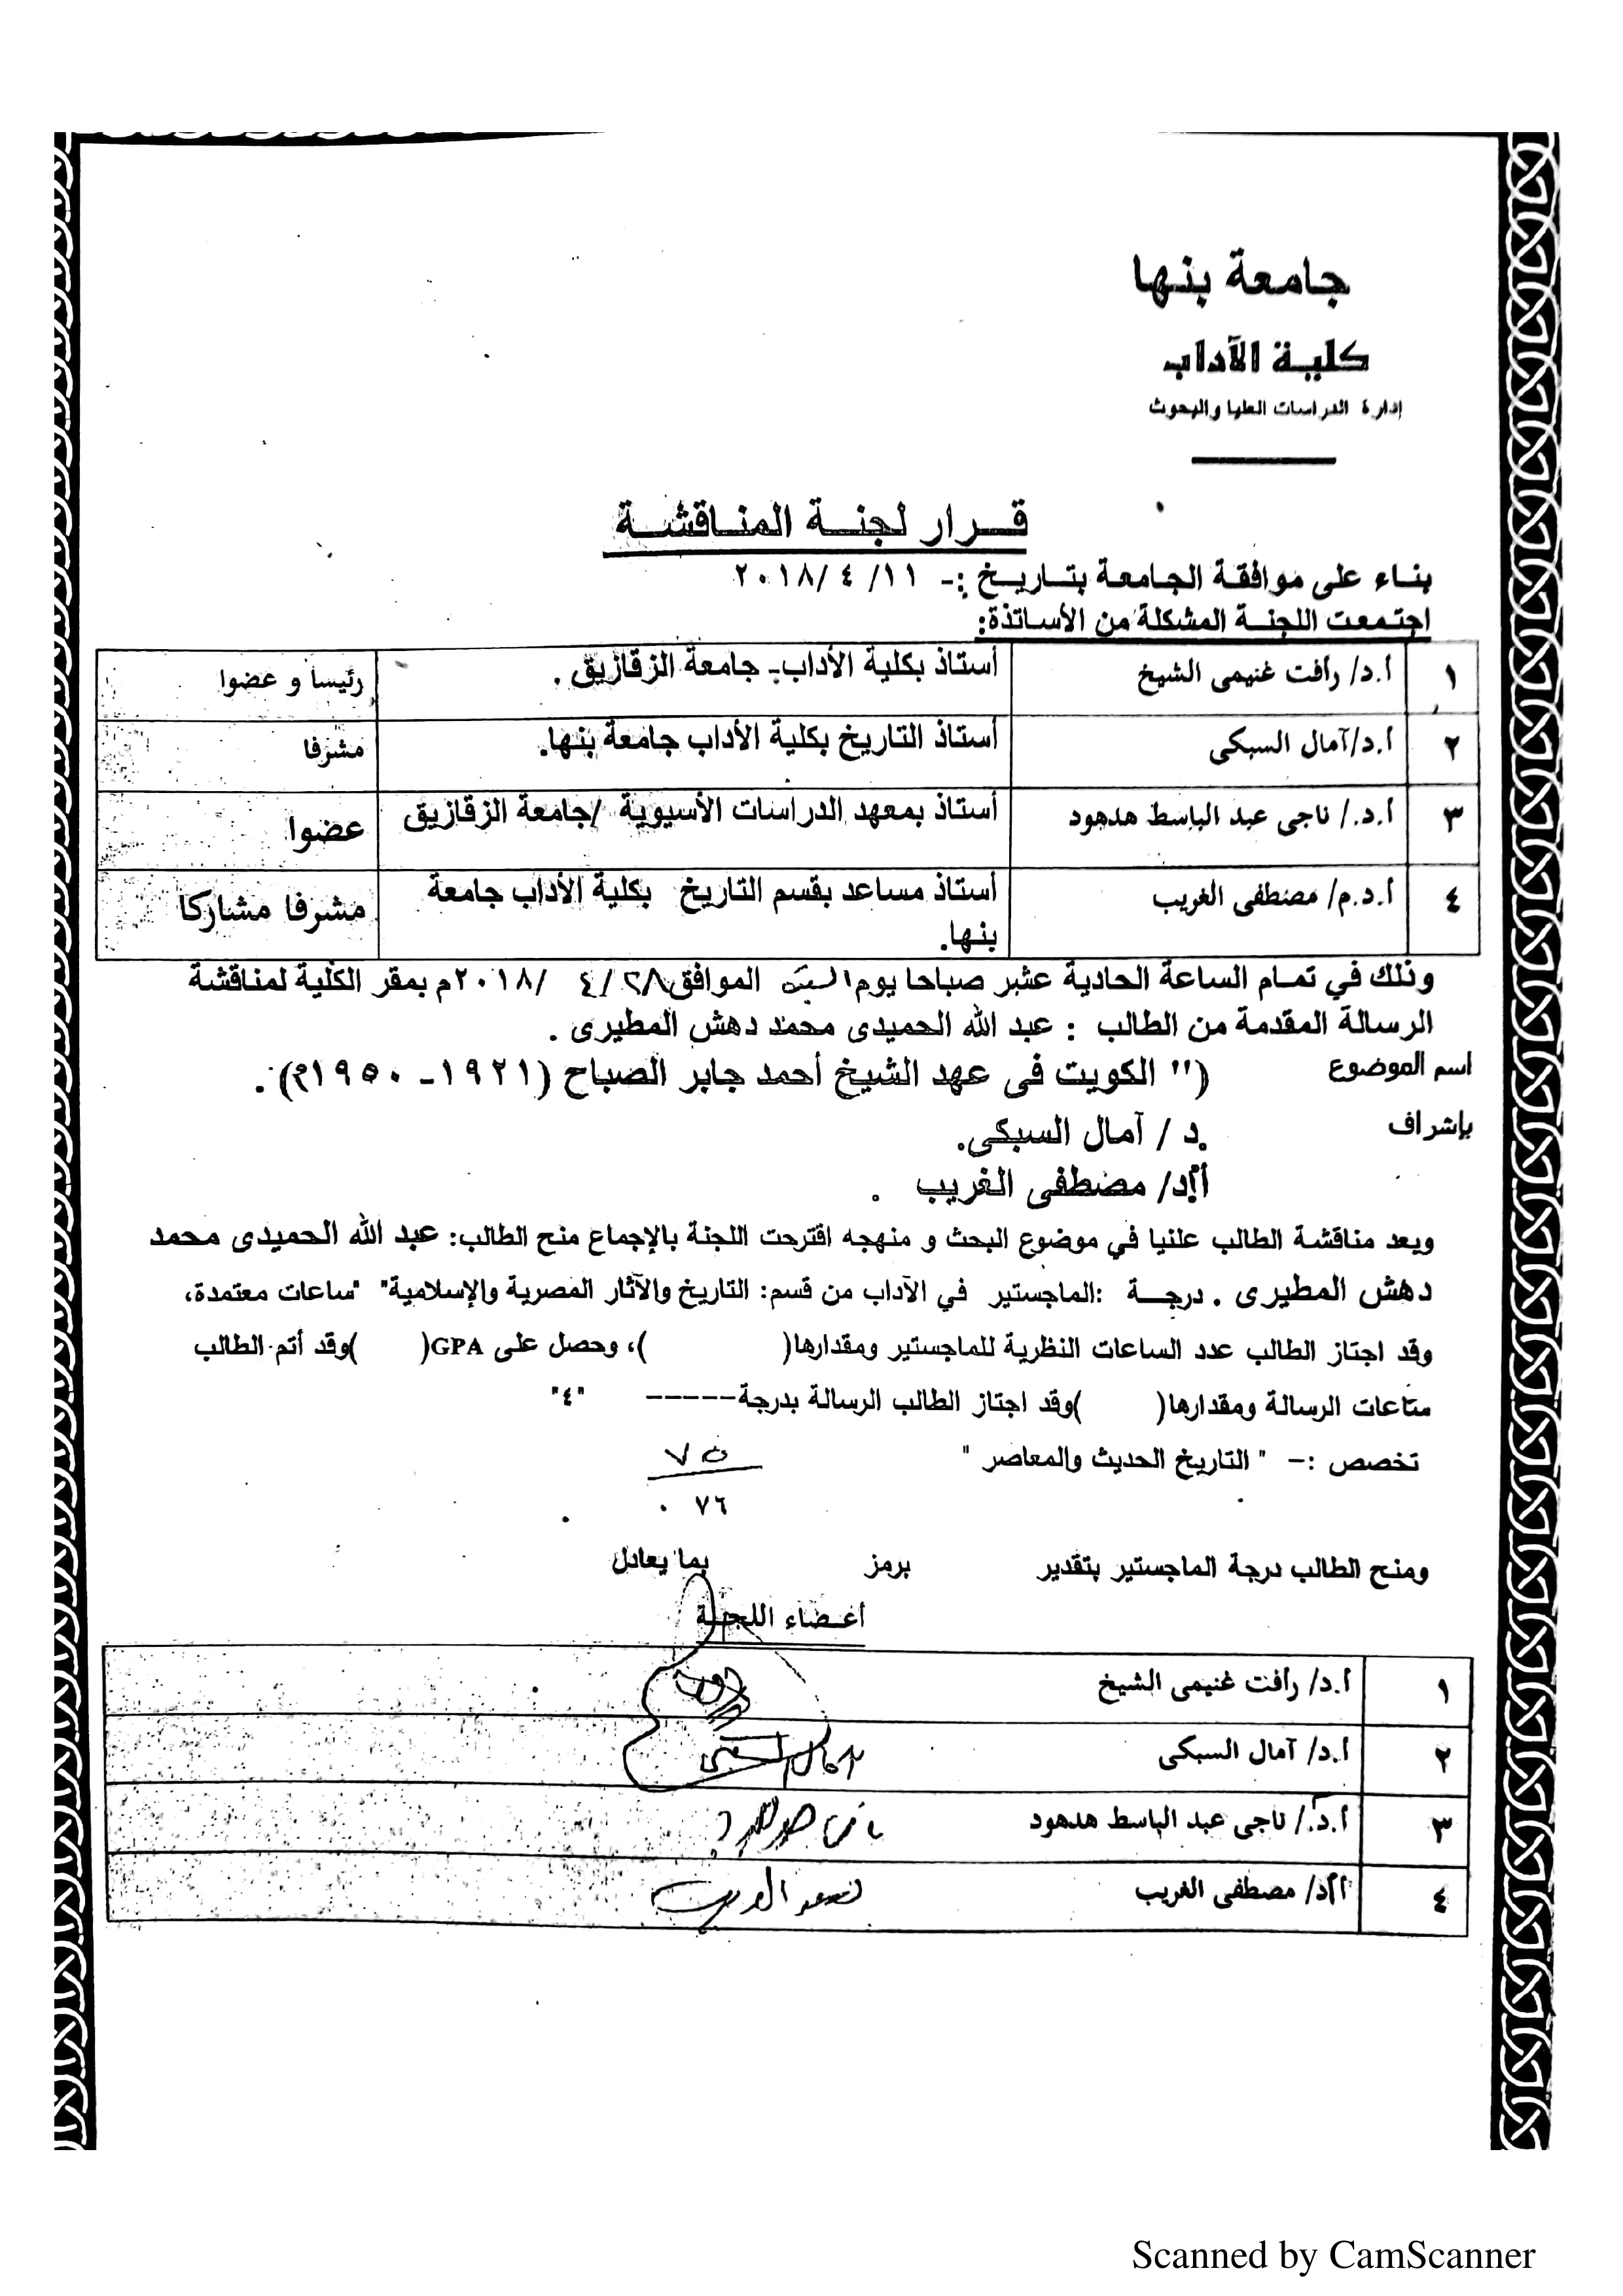 جامعة بنها
كلية الآداب
إدارة الدراسات العليا والبحوث
قرار لجنة المناقشة
بناء على موافقة الجامعة بتاريخ :- ١١/ ٤ /٢٠١٨
اجتمعت اللجنة المشكلة من الأساتذة:
١ أ.د/ رأفت غنيمى الشيخ أستاذ بكلية الأداب- جامعة الزقازيق . رئيسا و عضوا
٢ أ.د/آمال السبكى أستاذ التاريخ بكلية الأداب جامعة بنها. مشرفا
٣ أ.د./ ناجى عبد الباسط هدهود أستاذ بمعهد الدراسات الأسيوية /جامعة الزقازيق عضوا
٤ أ.د.م/ مصطفى الغريب أستاذ مساعد بقسم التاريخ بكلية الأداب جامعة مشرفا مشاركا
بنها.
وذلك في تمام الساعة الحادية عشر صباحا يوم السبت الموافق ٢٨/ ٤ /٢٠١٨م بمقر الكلية لمناقشة
الرسالة المقدمة من الطالب : عبد الله الحميدى محمد دهش المطيرى .
اسم الموضوع (" الكويت فى عهد الشيخ أحمد جابر الصباح (١٩٢١- ١٩٥٠م) .
بإشراف د / آمال السبكى.
أ.د/ مصطفى الغريب .
وبعد مناقشة الطالب علنيا في موضوع البحث و منهجه اقترحت اللجنة بالإجماع منح الطالب: عبد الله الحميدى محمد
دهش المطيرى . درجة :الماجستير في الآداب من قسم: التاريخ والآثار المصرية والإسلامية" "ساعات معتمدة،
وقد اجتاز الطالب عدد الساعات النظرية للماجستير ومقدارها( )، وحصل على GPA( )وقد أتم الطالب
ساعات الرسالة ومقدارها( )وقد اجتاز الطالب الرسالة بدرجة----- "٤"
تخصص :- " التاريخ الحديث والمعاصر "
٧٦
ومنح الطالب درجة الماجستير بتقدير برمز بما يعادل
أعضاء اللجنة
١ أ.د/ رأفت غنيمى الشيخ
٢ أ.د/ آمال السبكى آمال السبكى
٣ أ.د./ ناجى عبد الباسط هدهود
٤ أ.د/ مصطفى الغريب
Scanned by CamScanner